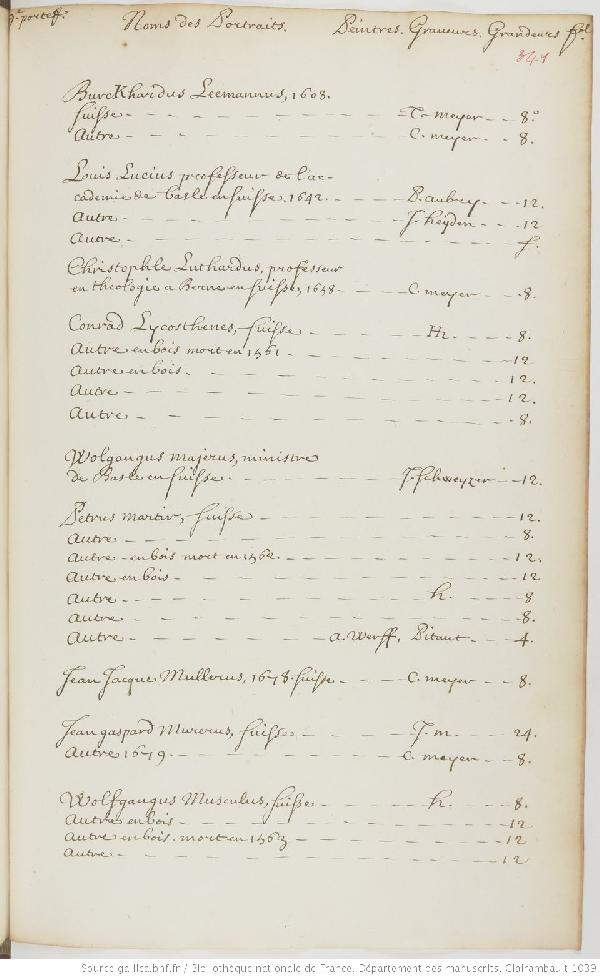 Noms des Portraits. Peintres. Graveurs. Grandeurs
341
Burckhardus Leemannus, 1608.
suisse - - - C. meyer - - 8.º
Autre - - - C. meyer - - 8.
Louis Lucius professeur de l'ac-
cademie de basle en suisse, 1642. - - - P. aubry - - 12.
Autre - - - J. heyden - - 12
Autre - - - f.
Christophle Luthardus, professeur
en theologie a Berne en suisse, 1658 - - - C. meyer - - 8.
Conrad Lycosthenes, suisse - - - H. - - 8.
Autre en bois mort en 1561 - - - 12
Autre en bois. - - - 12.
Autre - - - 12.
Autre - - - 8.
Wolgangus majerus, ministre
de Basle en suisse. - - - J. schweyzer - 12.
Petrus martir, suisse - - - 12.
Autre - - - 8.
Autre - en bois mort en 1562. - - - 12.
Autre en bois - - - 12
Autre - - - h. - - 8
Autre - - - 8.
Autre - - - a. Werff. Pitaut - - 4.
Jean Jacque Mullerus, 1678. suisse - - - C. meyer - - 8.
Jean gaspard Murerus, suisse - - - J. m. - - 24.
Autre 1679. - - - C. meyer - - 8.
Wolfgangus Musculus, suisse - - - h. - - 8.
Autre en bois - - - 12
Autre en bois. mort en 1563 - - - 12
Autre - - - 12
Source gallica.bnf.fr / Bibliothèque nationale de France. Département des manuscrits. Clairambault 1039